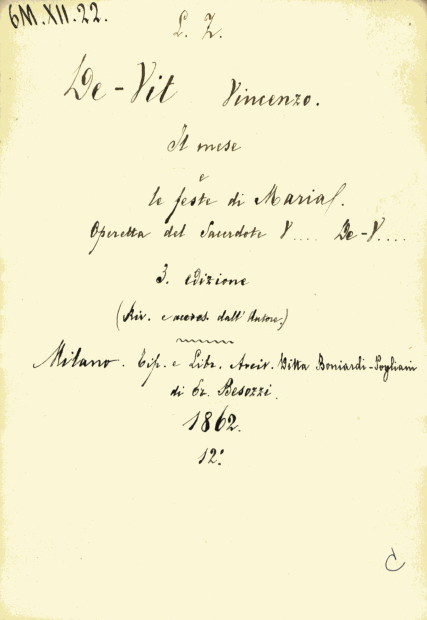 6M.XII.22.
L. Z.
De-Vit Vincenzo.
Il mese
e
le feste di Maria.
Operetta del Sacerdote V.... De-V....
3. edizione
(Riv. e accres. dall'Autore.)
Milano. Tip. e Libr. Arciv. Ditta Boniardi-Pogliani
di Er. Besozzi.
1862.
12°
C